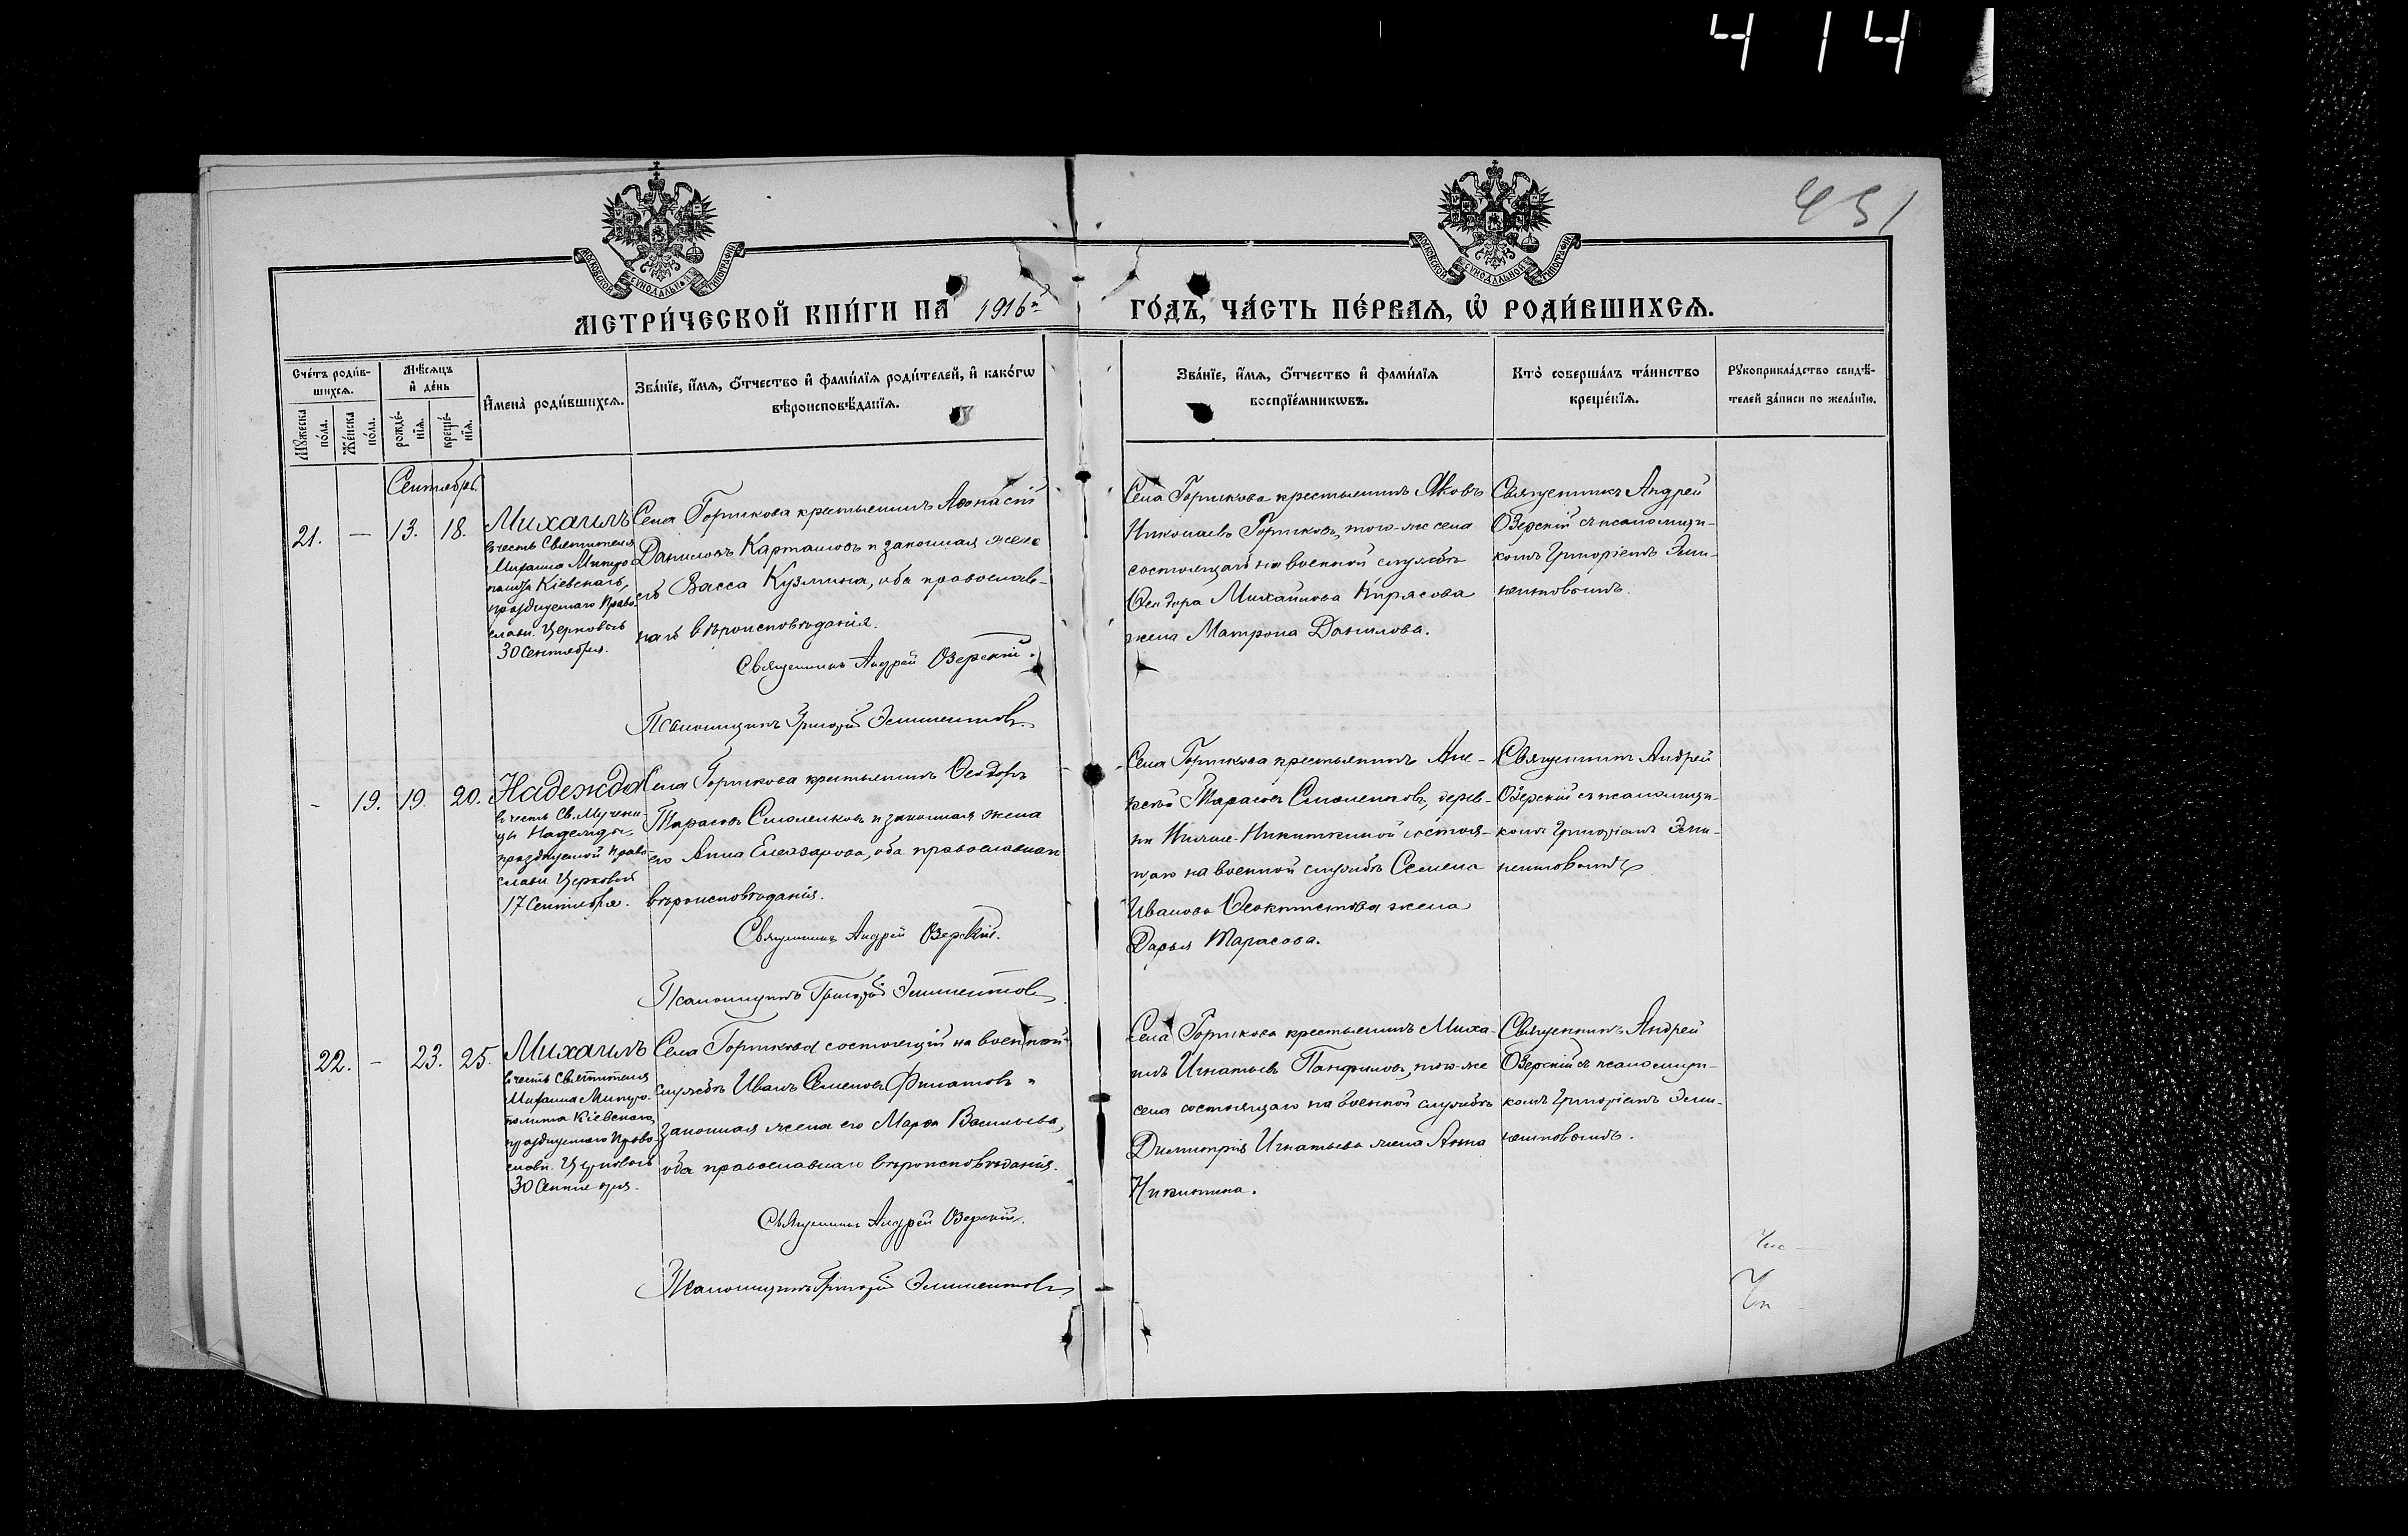 4 14
451
МОСКОВСКОЙ СѴНОДАЛЬНОЙ ТИПОГРАФІИ
МОСКОВСКОЙ СѴНОДАЛЬНОЙ ТИПОГРАФІИ
МЕТРИ́ЧЕСКОЙ КНИ́ГИ НА 1916й ГО́ДЪ, ЧА́СТЬ ПЕ́РВАѦ, Ѡ҆ РОДИ́ВШИХСѦ.
Сче́тъ роди́в-
шихсѧ.
Мꙋ́жеска по́ла.
Же́нска по́ла.
Мѣ́сѧцъ
и҆ де́нь
рожде́-
нїѧ.
креще́-
нїѧ.
И҆мена̀ роди́вшихсѧ.
Зва́нїе, и҆́мѧ, ѻ҆́тчество и҆ фами́лїѧ роди́телей, и҆ како́гѡ
вѣроисповѣ́данїѧ.
Зва́нїе, и҆́мѧ, ѻ҆́тчество и҆ фами́лїѧ
воспрїе́мникѡвъ.
Кто̀ соверша́лъ та́инство
креще́нїѧ.
Рꙋкоприкла́дство свидѣ́-
телей за́писи по жела́нїю.
Сентябрь.
21. — 13. 18.
Михаилъ
въ честь Святителя
Михаила Митро-
полита Кіевскаго,
празднуемаго Право-
славн. Церковью
30 Сентября.
Села Горшкова крестьянинъ Аѳонасій
Даниловъ Карташовъ и законная жена
его Васса Кузмина, оба православ-
наго вѣроисповѣданія.
Священникъ Андрей Озерскій.
Псаломщикъ Григорій
Села Горшкова крестьянинъ Яковъ
Николаевъ Горшковъ, того-же села
состоящаго на военной службѣ
Ѳеодора Михайлова Кирясова
жена Матрона Данилова.
Священникъ Андрей
Озерскій съ псаломщи-
комъ Григоріемъ
- 19. 19. 20.
Надежда
въ честь Св. Мучени-
цы Надежды,
празднуемой Право-
славн. Церковью
17 Сентября.
Села Горшкова крестьянинъ Ѳеодоръ
Тарасовъ Смоленковъ и законная жена
его Анна Елеазарова, оба православнаго
вѣроисповѣданія.
Священникъ Андрей Озерскій.
Псаломщикъ Григорій
Села Горшкова крестьянинъ Але-
ксѣй Тарасовъ Смоленковъ, дерев-
ни Никиткиной состоя-
щаго на военной службѣ Семена
Иванова Ѳеоктистова жена
Дарья Тарасова.
Священникъ Андрей
Озерскій съ псаломщи-
комъ Григоріемъ
22. - 23. 25.
Михаилъ
въ честь Святителя
Михаила Митро-
полита Кіевскаго,
празднуемаго Право-
славн. Церковью
30 Сентября.
Села Горшкова состоящій на военной
службѣ Иванъ Семеновъ Филатовъ и
законная жена его Марѳа Васильева,
оба православнаго вѣроисповѣданія.
Священникъ Андрей Озерскій.
Псаломщикъ Григорій
Села Горшкова крестьянинъ Миха-
илъ Игнатьевъ Панфиловъ, того-же
села состоящаго на военной службѣ
Димитрія Игнатьева жена Анна
Никитина.
Священникъ Андрей
Озерскій съ псаломщи-
комъ Григоріемъ